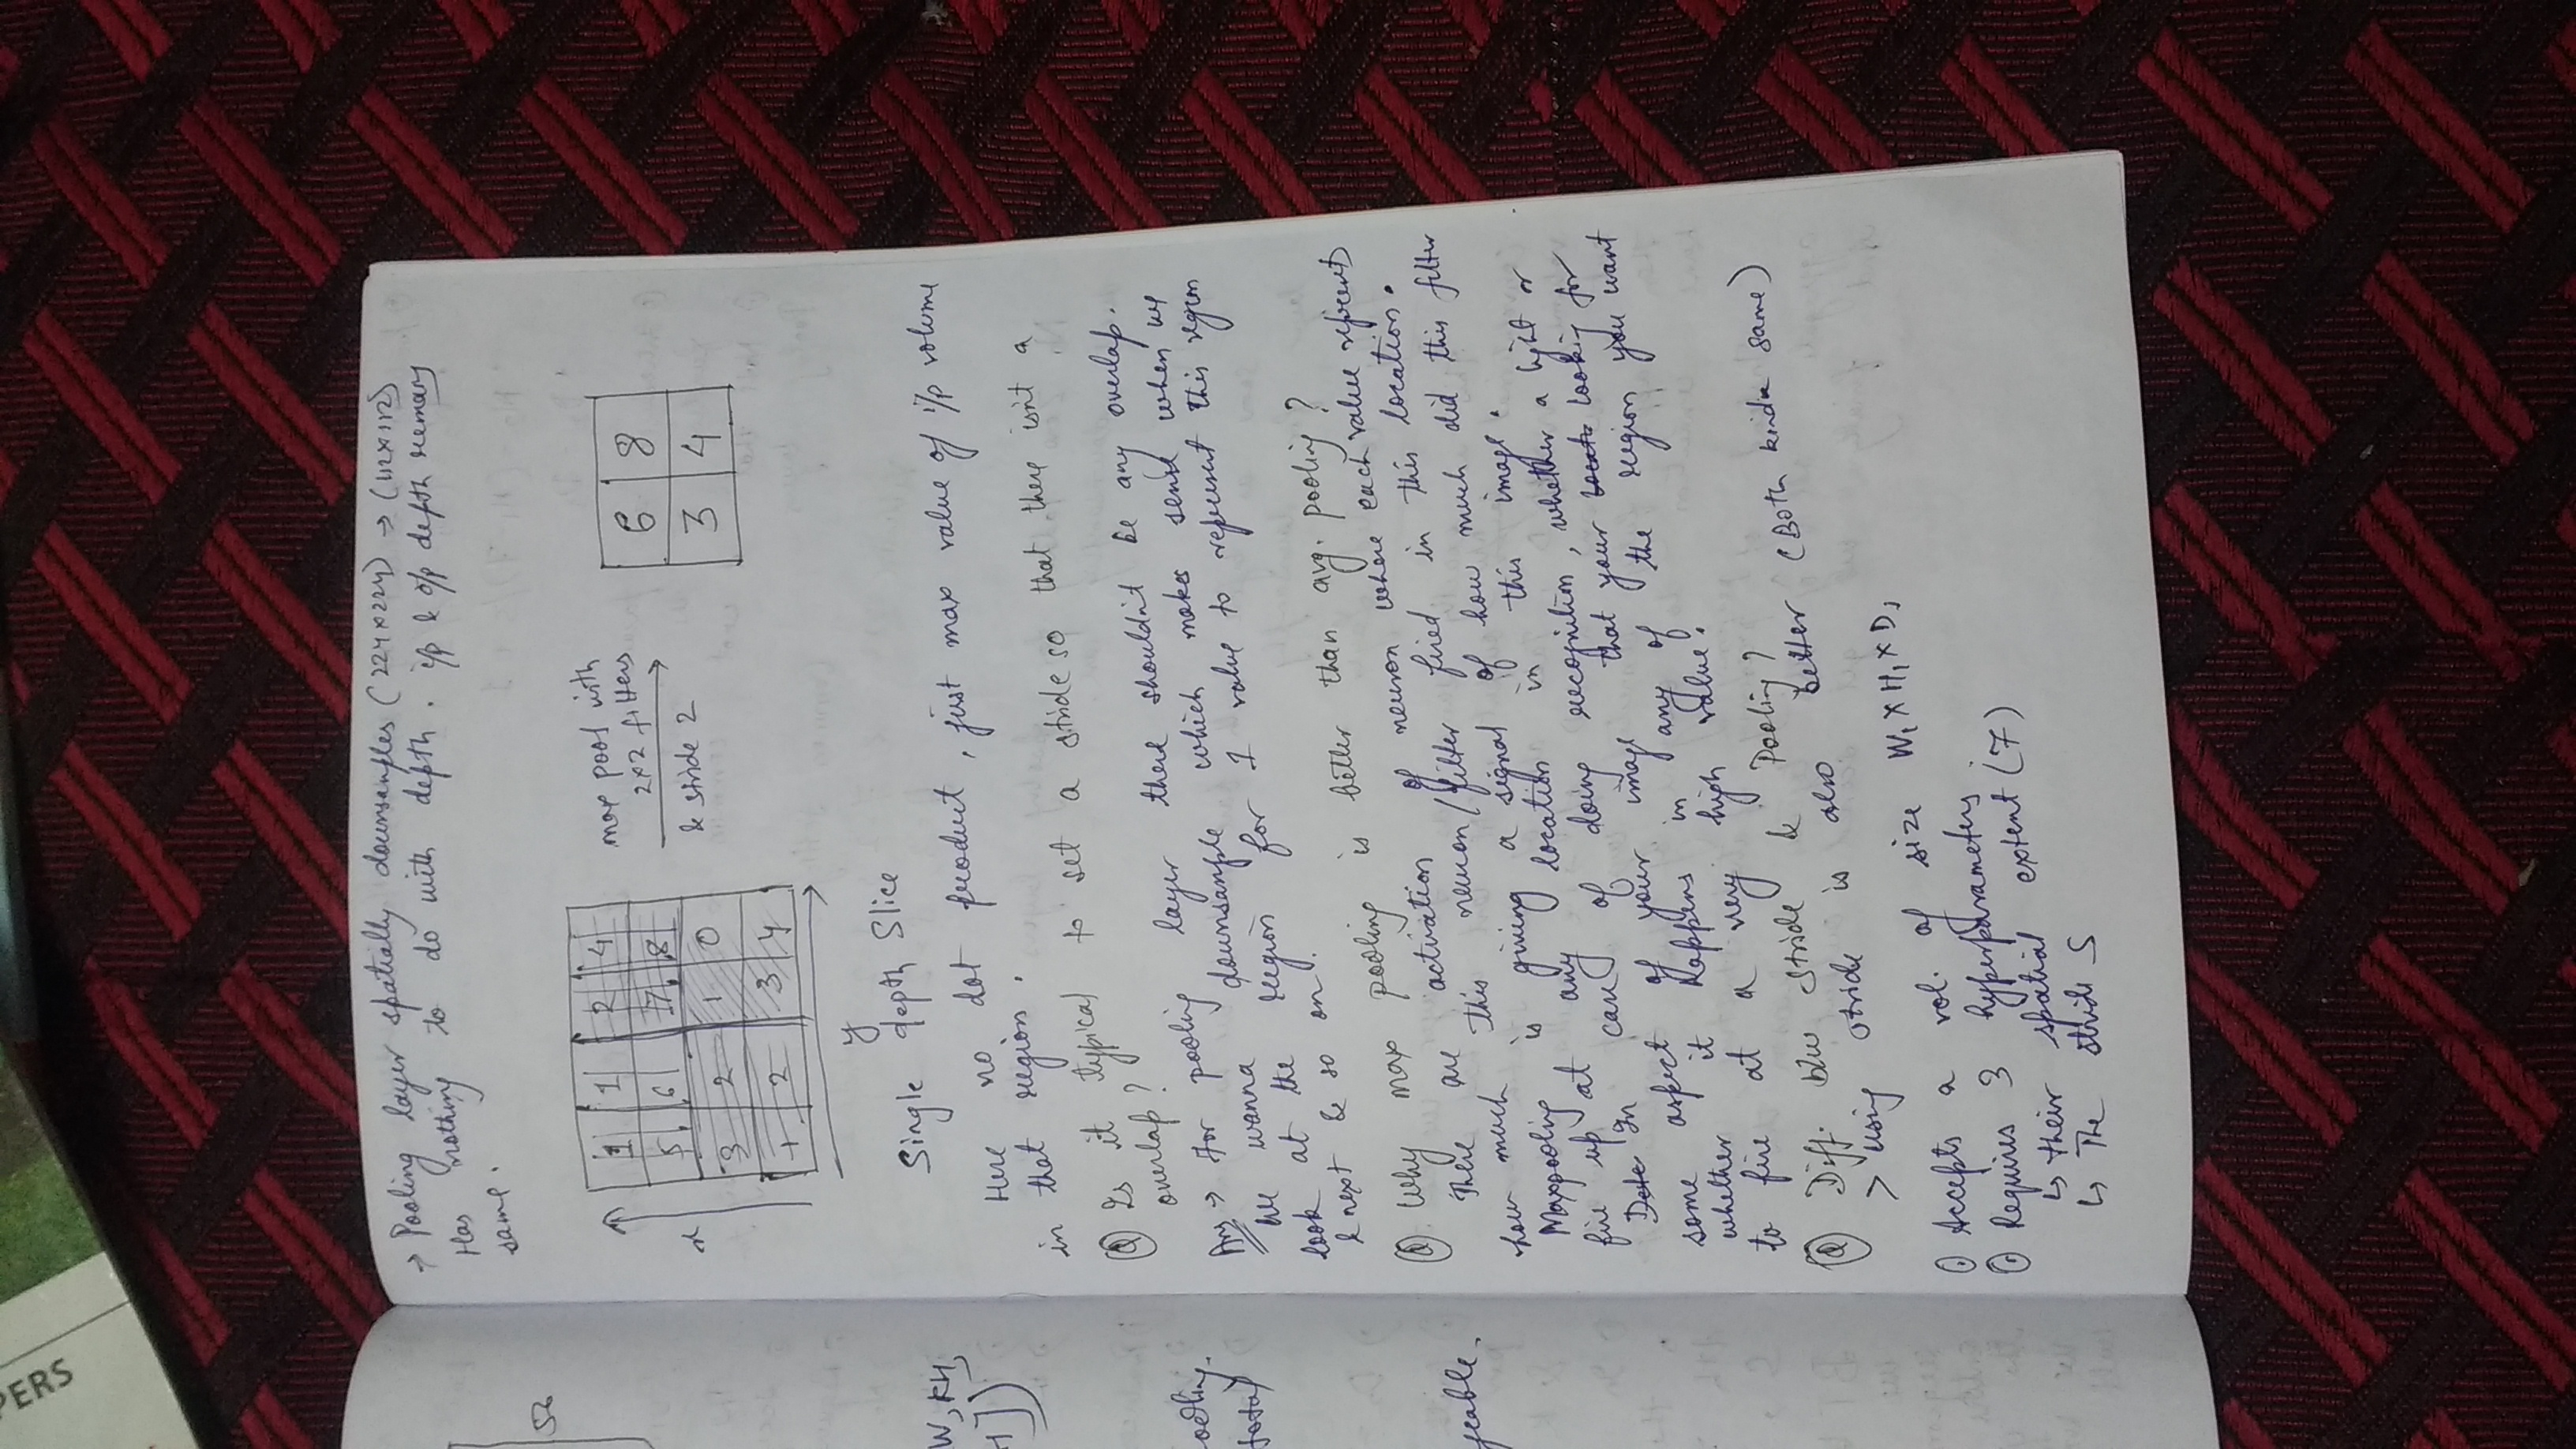 → Pooling layer spatially downsamples (224x224) → (112x112)
Has nothing to do with depth. i/p & o/p depth remary
same.
1 1 2 4
5 6 7 8
3 2 1 0
1 2 3 4
x
y
max pool with
2x2 filters
& stride 2
6 8
3 4
Single depth Slice
Here no dot product, just max value of i/p volume
in that region.
Q Is it typical to set a stride so that there isn't a
overlap?
Ans → For pooling layer there shouldn't be any overlap.
We wanna downsample which makes send when we
look at the region for 1 value to represent this region
& next & so on.
Q Why max pooling is better than avg. pooling?
There are activation of neuron where each value represent
how much this neuron/filter fired in this location.
Maxpooling is giving a signal of how much did this filter
fire up at any location in this image.
In can of doing recognition, whether a light or
some aspect of your image that your looking for
whether it happens in any of the region you want
to fire at a very high value.
Q Diff. b/w stride & Pooling?
> using stride is also better (Both kinda same)
① Accepts a vol. of size W₁ x H₁ x D₁
② Requires 3 hyperparameters:
↳ their spatial extent (7)
↳ The stride S
PERS
52
W, KH,
H])
ooling.
yeable.